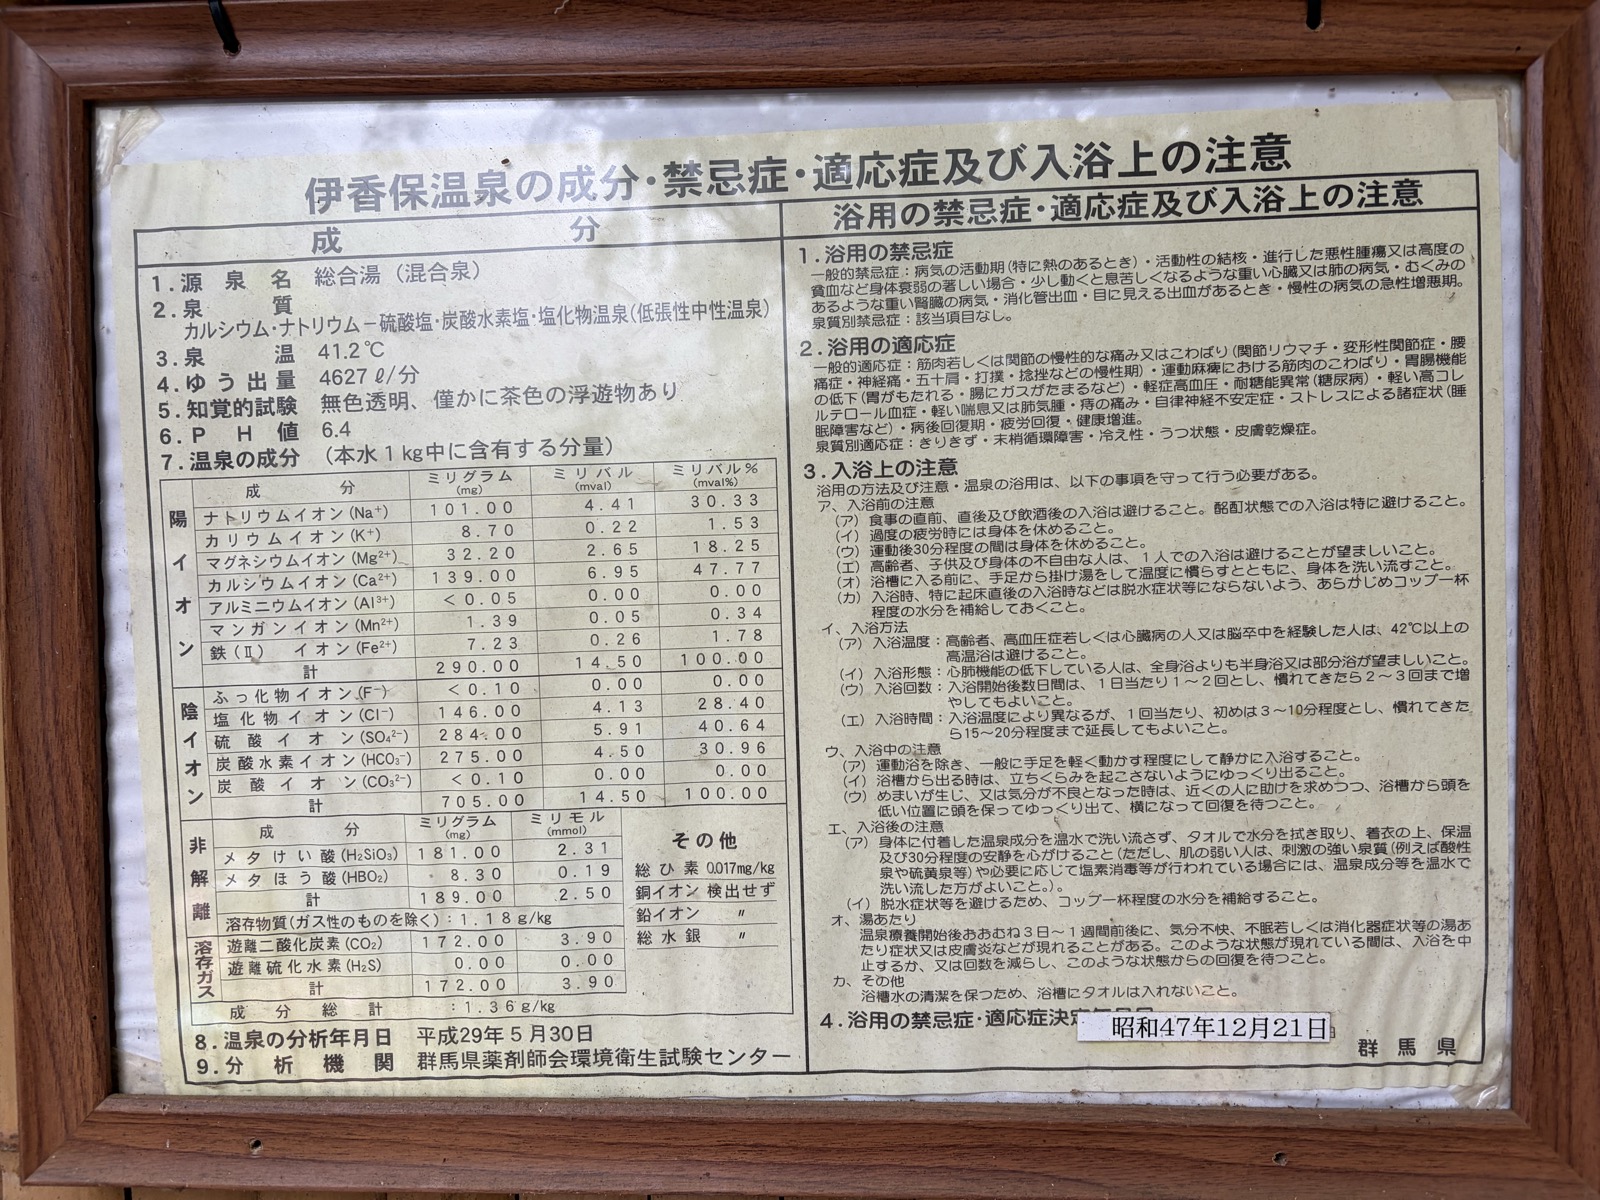 伊香保温泉の成分・禁忌症・適応症及び入浴上の注意
成分
1.源泉名 総合湯（混合泉）
2.泉質
カルシウム・ナトリウム－硫酸塩・炭酸水素塩・塩化物温泉(低張性中性温泉)
3.泉温 41.2℃
4.ゆう出量 4627ℓ/分
5.知覚的試験 無色透明、僅かに茶色の浮遊物あり
6.PH値 6.4
7.温泉の成分 （本水1kg中に含有する分量）
陽イオン
成分 ミリグラム(mg) ミリバル(mval) ミリバル%(mval%)
ナトリウムイオン(Na⁺) 101.00 4.41 30.33
カリウムイオン(K⁺) 8.70 0.22 1.53
マグネシウムイオン(Mg²⁺) 32.20 2.65 18.25
カルシウムイオン(Ca²⁺) 139.00 6.95 47.77
アルミニウムイオン(Al³⁺) <0.05 0.00 0.00
マンガンイオン(Mn²⁺) 1.39 0.05 0.34
鉄(Ⅱ)イオン(Fe²⁺) 7.23 0.26 1.78
計 290.00 14.50 100.00
陰イオン
ふっ化物イオン(F⁻) <0.10 0.00 0.00
塩化物イオン(Cl⁻) 146.00 4.13 28.40
硫酸イオン(SO₄²⁻) 284.00 5.91 40.64
炭酸水素イオン(HCO₃⁻) 275.00 4.50 30.96
炭酸イオン(CO₃²⁻) <0.10 0.00 0.00
計 705.00 14.50 100.00
非解離
成分 ミリグラム(mg) ミリモル(mmol)
メタけい酸(H₂SiO₃) 181.00 2.31
メタほう酸(HBO₂) 8.30 0.19
計 189.00 2.50
溶存物質(ガス性のものを除く)：1.18g/kg
溶存ガス
遊離二酸化炭素(CO₂) 172.00 3.90
遊離硫化水素(H₂S) 0.00 0.00
計 172.00 3.90
成分総計 ：1.36g/kg
その他
総ひ素 0.017mg/kg
銅イオン 検出せず
鉛イオン 〃
総水銀 〃
8.温泉の分析年月日 平成29年5月30日
9.分析機関 群馬県薬剤師会環境衛生試験センター
浴用の禁忌症・適応症及び入浴上の注意
1.浴用の禁忌症
一般的禁忌症：病気の活動期(特に熱のあるとき)・活動性の結核・進行した悪性腫瘍又は高度の
貧血など身体衰弱の著しい場合・少し動くと息苦しくなるような重い心臓又は肺の病気・むくみの
あるような重い腎臓の病気・消化管出血・目に見える出血があるとき・慢性の病気の急性増悪期。
泉質別禁忌症：該当項目なし。
2.浴用の適応症
一般的適応症：筋肉若しくは関節の慢性的な痛み又はこわばり(関節リウマチ・変形性関節症・腰
痛症・神経痛・五十肩・打撲・捻挫などの慢性期)・運動麻痺における筋肉のこわばり・胃腸機能
の低下(胃がもたれる・腸にガスがたまるなど)・軽症高血圧・耐糖能異常(糖尿病)・軽い高コレ
ステロール血症・軽い喘息又は肺気腫・痔の痛み・自律神経不安定症・ストレスによる諸症状(睡
眠障害など)・病後回復期・疲労回復・健康増進。
泉質別適応症：きりきず・末梢循環障害・冷え性・うつ状態・皮膚乾燥症。
3.入浴上の注意
浴用の方法及び注意・温泉の浴用は、以下の事項を守って行う必要がある。
ア、入浴前の注意
(ア) 食事の直前、直後及び飲酒後の入浴は避けること。酩酊状態での入浴は特に避けること。
(イ) 過度の疲労時には身体を休めること。
(ウ) 運動後30分程度の間は身体を休めること。
(エ) 高齢者、子供及び身体の不自由な人は、1人での入浴は避けることが望ましいこと。
(オ) 浴槽に入る前に、手足から掛け湯をして温度に慣らすとともに、身体を洗い流すこと。
(カ) 入浴時、特に起床直後の入浴時などは脱水症状等にならないよう、あらかじめコップ一杯
程度の水分を補給しておくこと。
イ、入浴方法
(ア) 入浴温度：高齢者、高血圧症若しくは心臓病の人又は脳卒中を経験した人は、42℃以上の
高温浴は避けること。
(イ) 入浴形態：心肺機能の低下している人は、全身浴よりも半身浴又は部分浴が望ましいこと。
(ウ) 入浴回数：入浴開始後数日間は、1日当たり1～2回とし、慣れてきたら2～3回まで増
やしてもよいこと。
(エ) 入浴時間：入浴温度により異なるが、1回当たり、初めは3～10分程度とし、慣れてきた
ら15～20分程度まで延長してもよいこと。
ウ、入浴中の注意
(ア) 運動浴を除き、一般に手足を軽く動かす程度にして静かに入浴すること。
(イ) 浴槽から出る時は、立ちくらみを起こさないようにゆっくり出ること。
(ウ) めまいが生じ、又は気分が不良となった時は、近くの人に助けを求めつつ、浴槽から頭を
低い位置に頭を保ってゆっくり出て、横になって回復を待つこと。
エ、入浴後の注意
(ア) 身体に付着した温泉成分を温水で洗い流さず、タオルで水分を拭き取り、着衣の上、保温
及び30分程度の安静を心がけること(ただし、肌の弱い人は、刺激の強い泉質(例えば酸性
泉や硫黄泉等)や必要に応じて塩素消毒等が行われている場合には、温泉成分等を温水で
洗い流した方がよいこと。)。
(イ) 脱水症状等を避けるため、コップ一杯程度の水分を補給すること。
オ、湯あたり
温泉療養開始後おおむね3日～1週間前後に、気分不快、不眠若しくは消化器症状等の湯あ
たり症状又は皮膚炎などが現れることがある。このような状態が現れている間は、入浴を中
止するか、又は回数を減らし、このような状態からの回復を待つこと。
カ、その他
浴槽水の清潔を保つため、浴槽にタオルは入れないこと。
4.浴用の禁忌症・適応症決定
昭和47年12月21日
群馬県